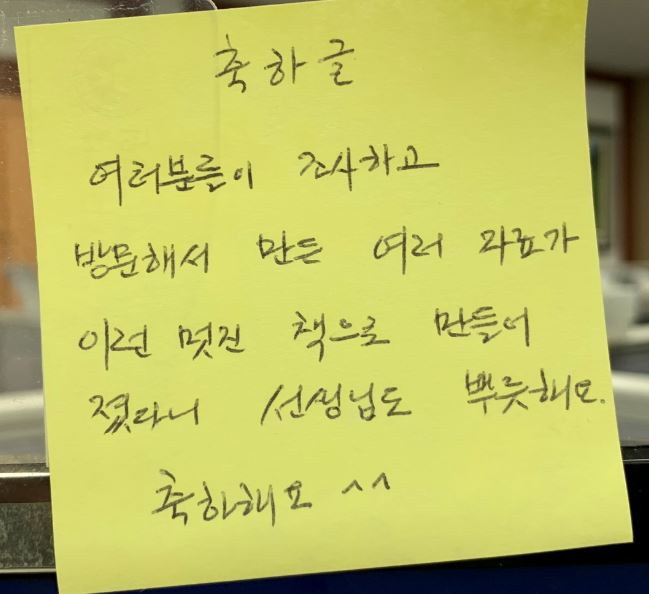 축하글
여러분들이 조사하고
방문해서 만든 여러 자료가
이런 멋진 책으로 만들어
졌다니 선생님도 뿌듯해요.
축하해요 ^^